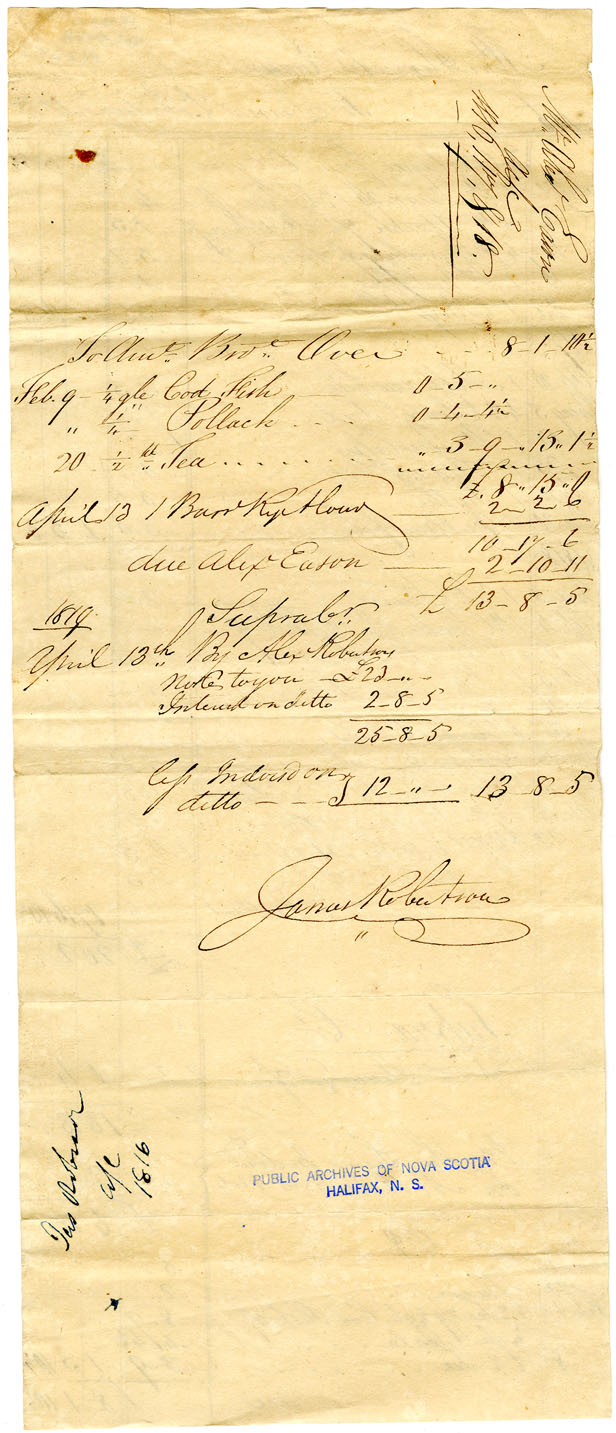 Mr. Alexr Eason
a/c
1818.
To Amt. Brot. Over - - - 8-1-10½
Feb. 9 - ¼ qle Cod Fish 0-5-"
" ¼" Pollack - - - - 0-4-4½
20 - ½ lb " Tea - - - - - - " 3-9 - " 13 " 1½
£. 8 " 15 " 0
April 13 1 Barrl Rye Flour - 2-2-6
10-17-6
due Alexr Eason - 2-10-11
£ 13-8-5
1819 Supra Cr.
April 13th By Alex Robertsons
Note to you - £23 - " -
Interest on ditto 2-8-5
25-8-5
Less Indorsd on }
ditto - - - } 12 - " - 13-8-5
James Robertson
"
Jas Robinson
a/c
1816
PUBLIC ARCHIVES OF NOVA SCOTIA
HALIFAX, N. S.